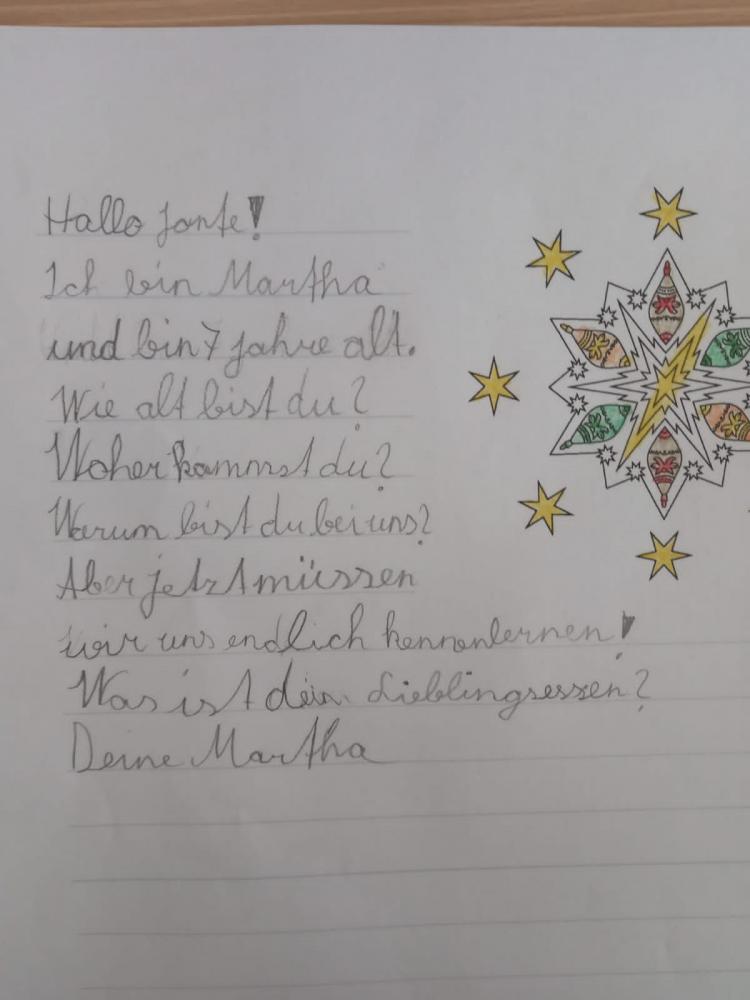 Hallo Jonte!
Ich bin Martha
und bin 7 Jahre alt.
Wie alt bist du?
Woher kommst du?
Warum bist du bei uns?
Aber jetzt müssen
wir uns endlich kennenlernen!
Was ist dein Lieblingsessen?
Deine Martha